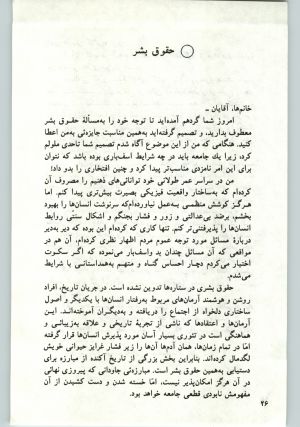 حقوق بشر
خانم‌ها، آقایان ـ
امروز شما گردهم آمده‌اید تا توجه خود را به‌مسألهٔ حقوق بشر
معطوف بدارید، و تصمیم گرفته‌اید به‌همین مناسبت جایزه‌ئی به‌من اعطا
کنید. هنگامی که من از این موضوع آگاه شدم تصمیم شما تاحدی ملولم
کرد، زیرا یك جامعه باید در چه شرایط اسف‌باری بوده باشد که نتوان
برای این امر نامزدی مناسب‌تر پیدا کرد و چنین افتخاری را بدو داد!
من در سراسر عمر طولانی خود توانائی‌های ذهنیم را مصروف آن
کرده‌ام که به‌ساختار واقعیت فیزیکی بصیرت بیش‌تری پیدا کنم. اما
هرگز کوشش منظمی به‌عمل نیاورده‌ام‌که سرنوشت انسان‌ها را بهبود
بخشم، برضد بی‌عدالتی و زور و فشار بجنگم و اشکال سنتی روابط
انسان‌ها را پذیرفتنی‌تر کنم. تنها کاری که‌کرده‌ام این بوده که دیر به‌دیر
دربارهٔ مسائل مورد توجه عموم مردم اظهار نظری کرده‌ام، آن هم در
مواقعی که آن مسائل چندان بد واسف‌بار می‌نموده که اگر سکوت
اختیار می‌کردم دچار احساس گناه و متهم به‌همداستانی با شرایط
می‌شدم.
سرنوشت حقوق بشر در ستاره‌ها تدوین نشده است. در جریان تاریخ، افراد
روشن و هوشمند آرمان‌های مربوط به‌رفتار انسان‌ها با یکدیگر و اصول
ساختاری دلخواه از اجتماع را دریافته و به‌دیگران آموخته‌اند. این
آرمان‌ها و اعتقادها که ناشی از تجربهٔ تاریخی و علاقه به‌زیبائی و
هماهنگی است در تئوری بسیار آسان مورد پذیرش انسان‌ها قرار گرفته
اما در تمام زمان‌ها، همان آدم‌ها آن‌ها را زیر فشار غرایز حیوانی خویش
لگدمال کرده‌اند. بنابراین بخش بزرگی از تاریخ آکنده از مبارزه برای
دستیابی به‌همین حقوق بشر است. مبارزه‌ئی جاودانی که پیروزی نهائی
در آن هرگز امکان‌پذیر نیست. اما خسته شدن و دست کشیدن از آن
مفهومش نابودی قطعی جامعه خواهد بود.
۲۶